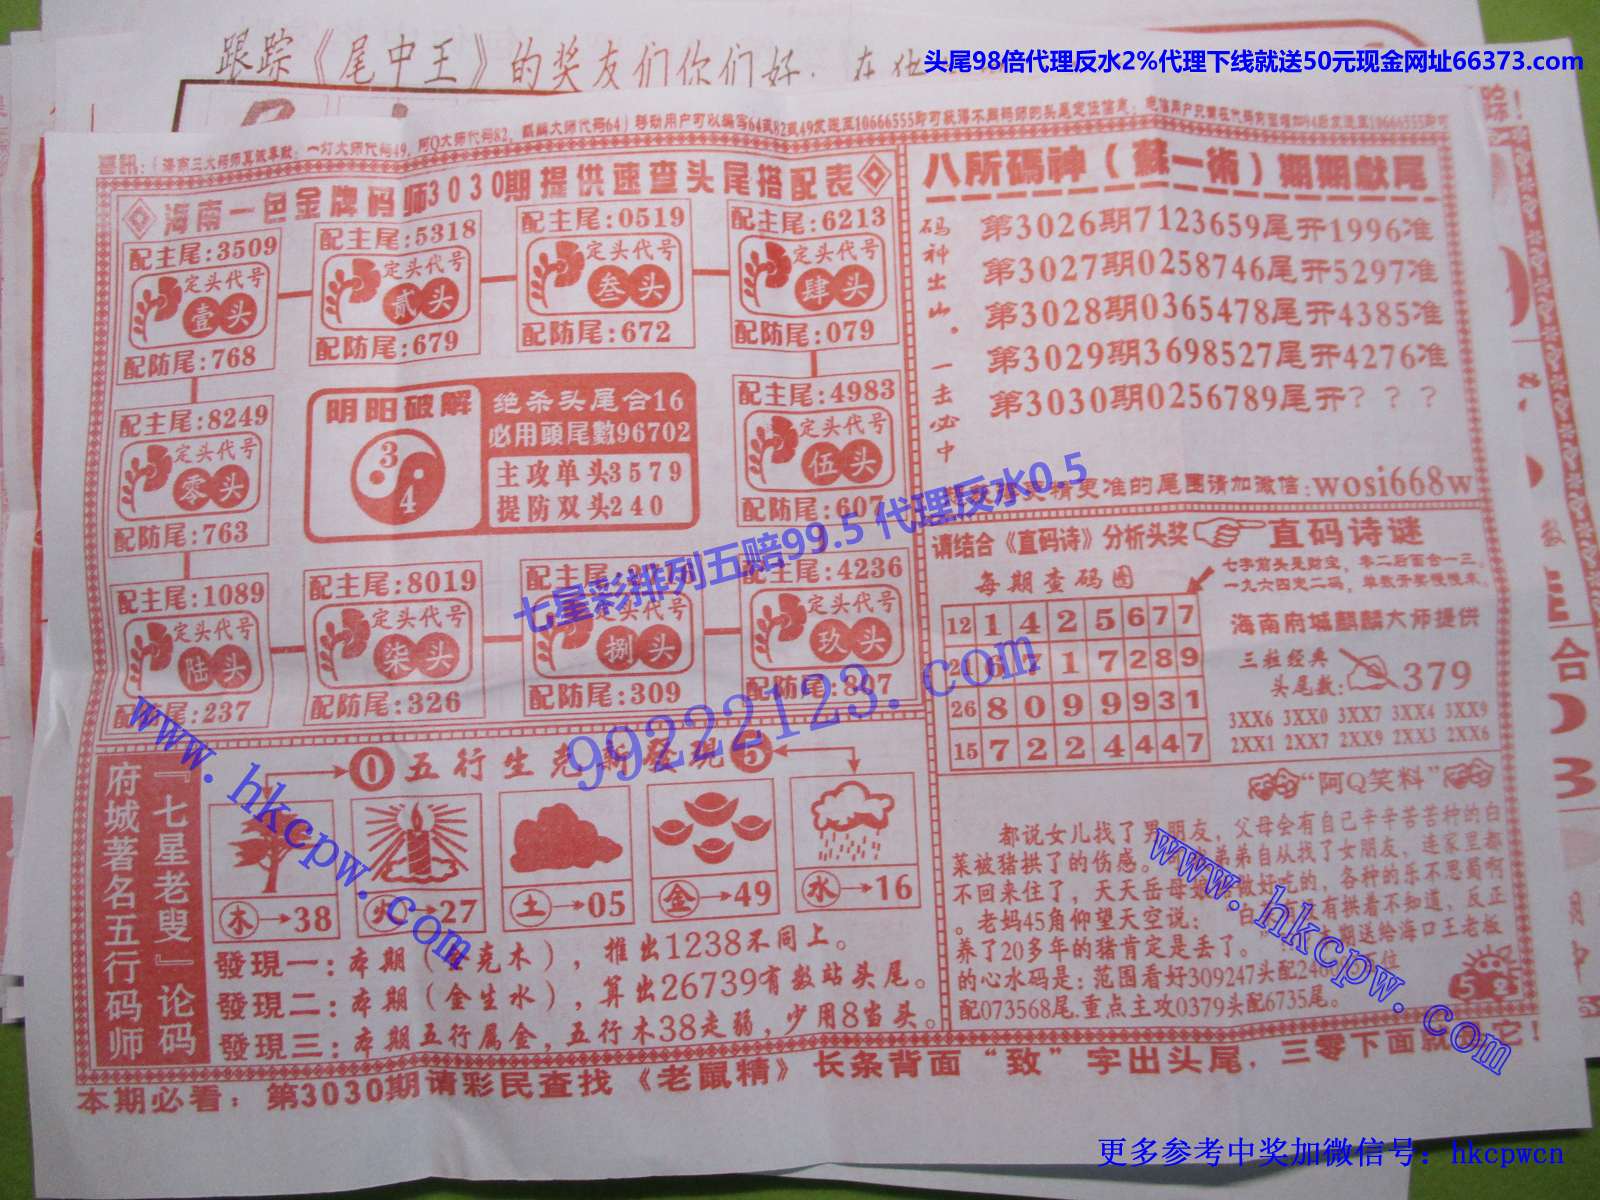 跟踪《尾中王》的奖友们你们好，在
头尾98倍代理反水2%代理下线就送50元现金网址66373.com
喜讯：（海南三大码师真诚奉献：一灯大师代码49，阿Q大师代码82，麒麟大师代码64）移动用户可以编写64或82或49发送至10666555即可获得不同码师的头尾定位信息；电信用户只需在代码前面增加94后发送至10666555即可
海南一色金牌码师3030期提供速查头尾搭配表
配主尾:3509
定头代号
壹头
配防尾:768
配主尾:5318
定头代号
贰头
配防尾:679
配主尾:0519
定头代号
叁头
配防尾:672
配主尾:6213
定头代号
肆头
配防尾:079
配主尾:8249
定头代号
零头
配防尾:763
阴阳破解
3
4
绝杀头尾合16
必用頭尾數96702
主攻单头3579
提防双头240
配主尾:4983
定头代号
伍头
配防尾:607
配主尾:1089
定头代号
陆头
配防尾:237
配主尾:8019
定头代号
柒头
配防尾:326
配主尾:
定头代号
捌头
配防尾:309
配主尾:4236
定头代号
玖头
配防尾:807
八所碼神（蘇一術）期期獻尾
码神出山。一击必中
第3026期7123659尾开1996准
第3027期0258746尾开5297准
第3028期0365478尾开4385准
第3029期3698527尾开4276准
第3030期0256789尾开？？？
精更准的尾图请加微信:wosi668w
请结合《直码诗》分析头奖
直码诗谜
每期查码图
七字前头是财宝，零二后面合一三。
一九六四克二码，单数开奖慢慢来。
12 1 4 2 5 6 7 7
21 6 7 1 7 2 8 9
26 8 0 9 9 9 3 1
15 7 2 2 4 4 4 7
海南府城麒麟大师提供
三粒经典
头尾数:
379
3XX6 3XX0 3XX7 3XX4 3XX9
2XX1 2XX7 2XX9 2XX3 2XX6
『七星老叟』论码
府城著名五行码师
0 五行生克新發現 5
木→38
火→27
土→05
金→49
水→16
發現一:本期（ 克木），推出1238不同上。
發現二:本期（金生水），算出26739有数站头尾。
發現三:本期五行属金，五行木38走弱，少用8当头。
“阿Q笑料”
都说女儿找了男朋友，父母会有自己辛辛苦苦种的白
菜被猪拱了的伤感。 弟弟自从找了女朋友，连家里都
不回来住了，天天岳母 做好吃的，各种的乐不思蜀啊
。老妈45角仰望天空说： 白 有拱着不知道，反正
养了20多年的猪肯定是丢了。 期送给海口王老板
的心水码是：范围看好309247头配 位
配073568尾.重点主攻0379头配6735尾。
本期必看：第3030期请彩民查找《老鼠精》长条背面“致”字出头尾，三零下面就 它！
七星彩排列五赔99.5 代理反水0.5
99222123.com
www.hkcpw.com
www.hkcpw.com
更多参考中奖加微信号：hkcpwcn